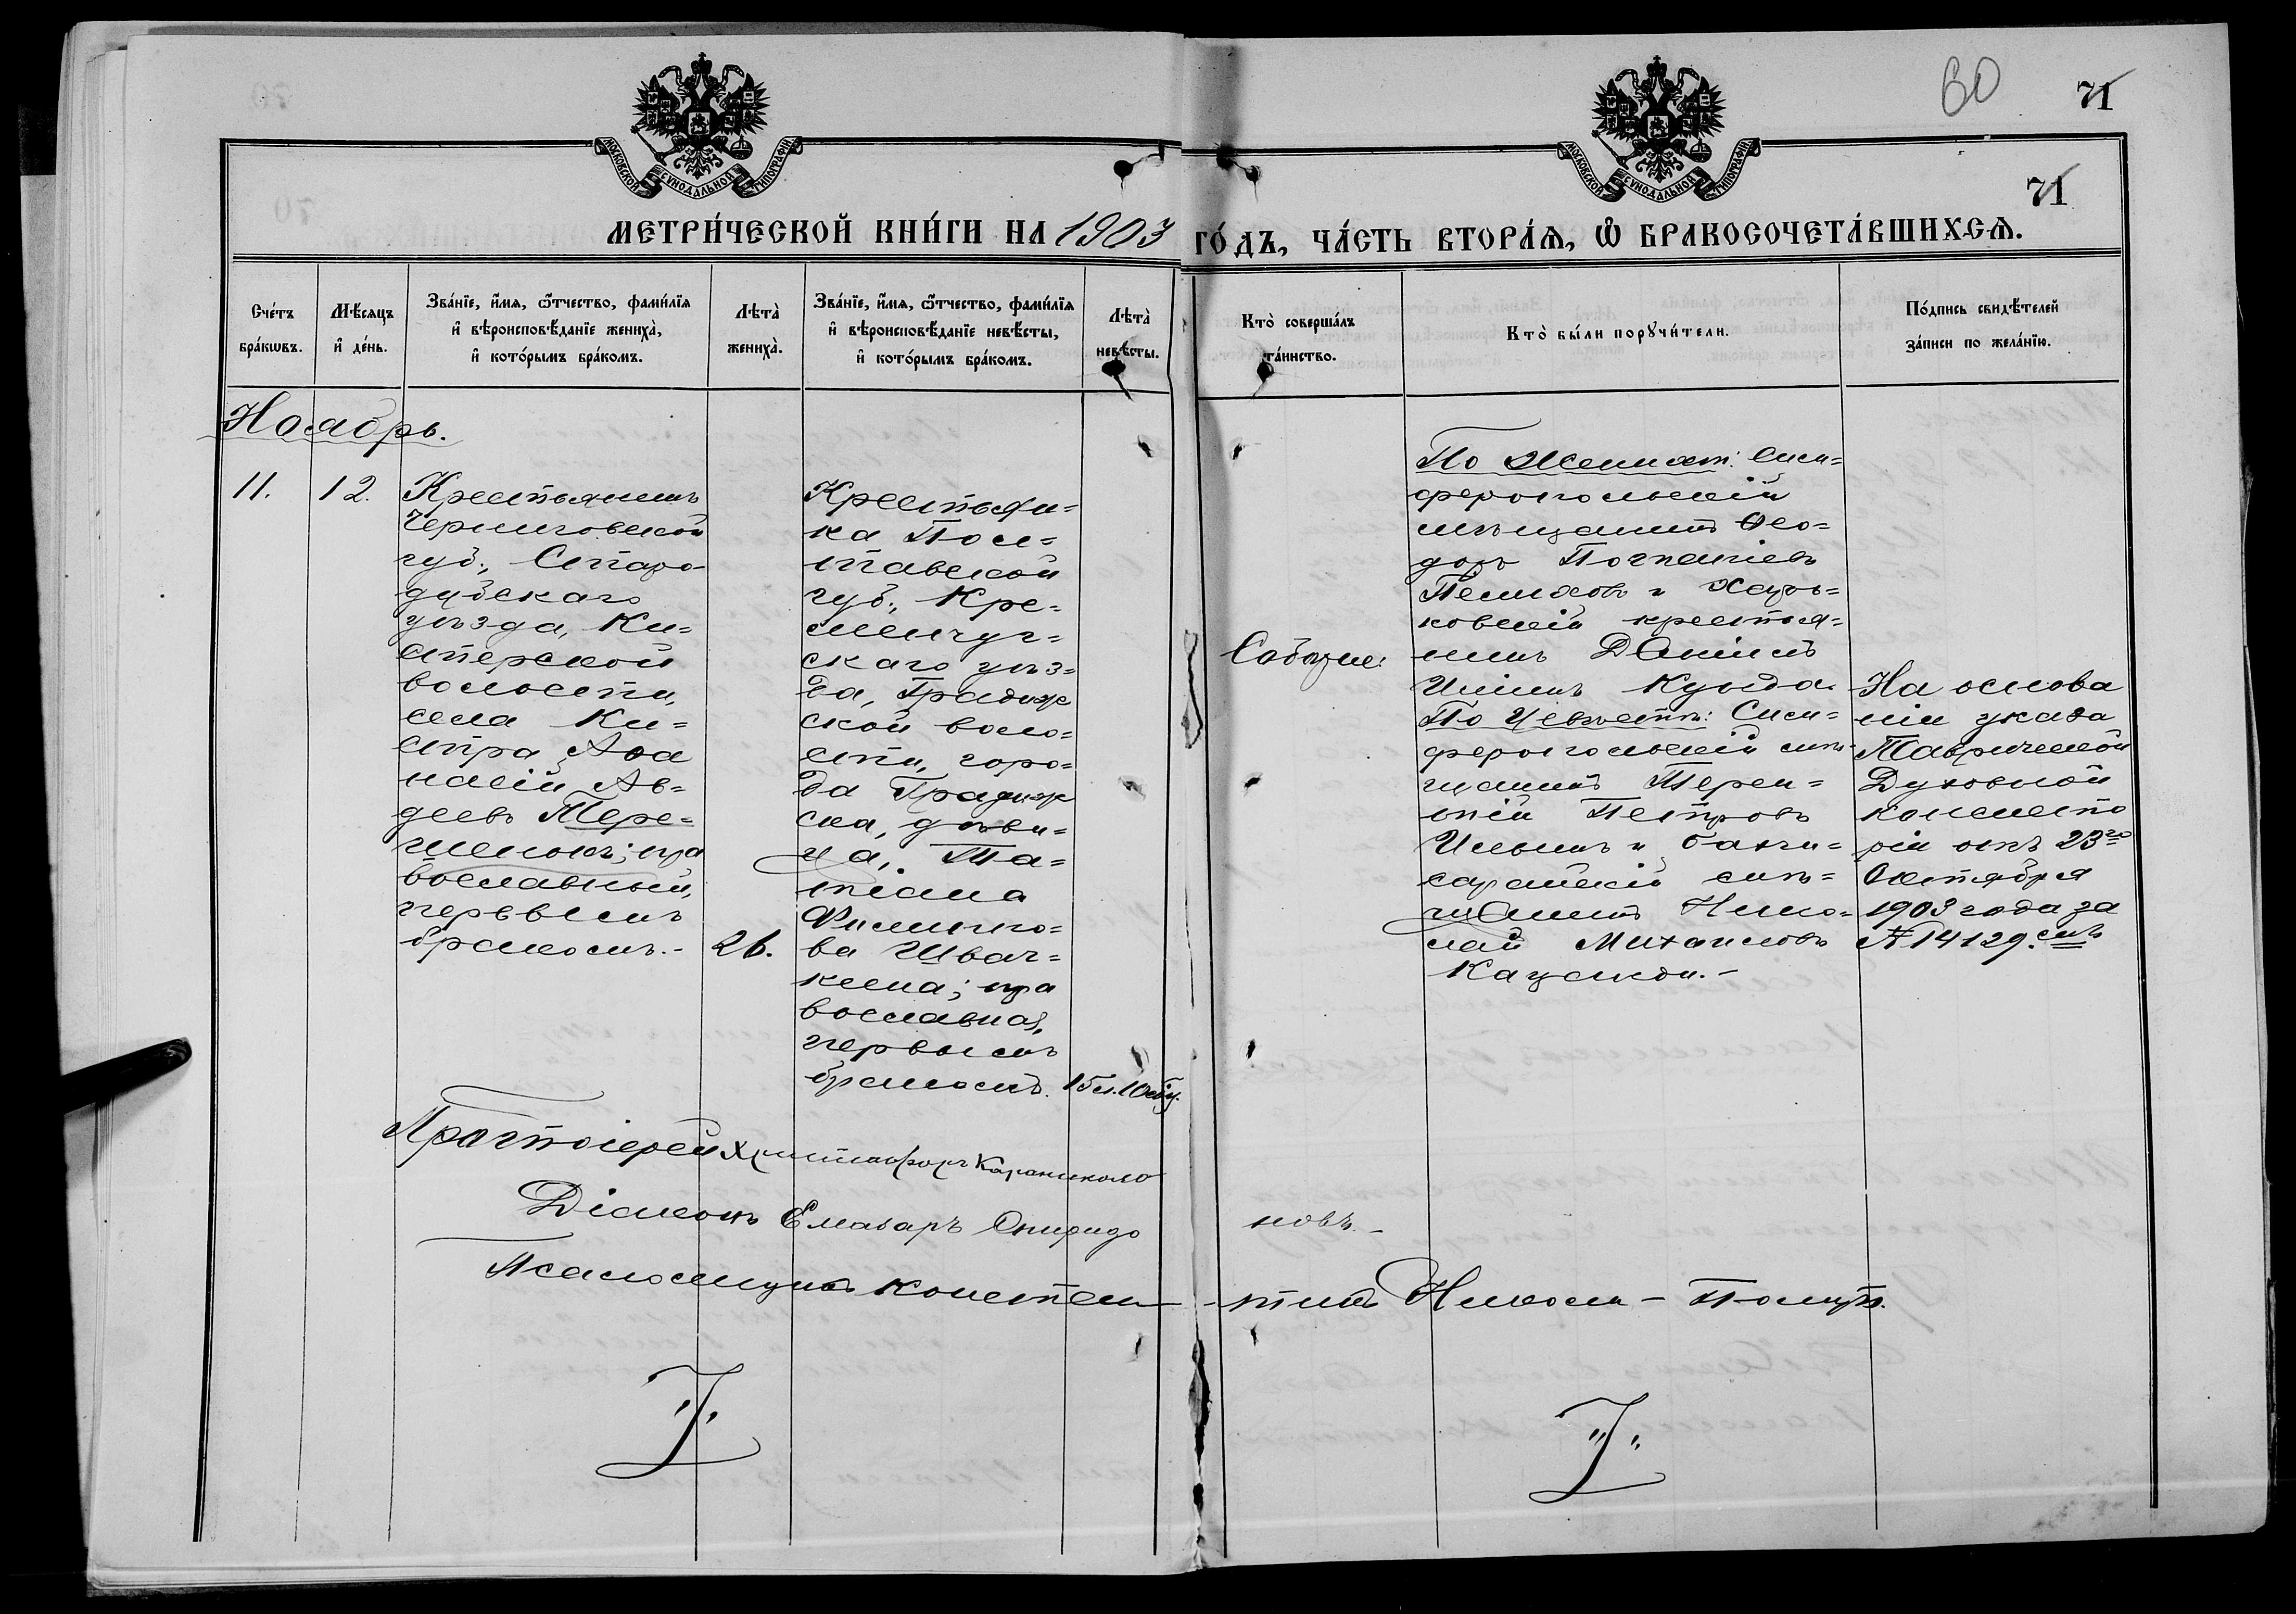 60
71
71
МОСКОВСКОЙ СѴНОДАЛЬНОЙ ТИПОГРАФІИ
МОСКОВСКОЙ СѴНОДАЛЬНОЙ ТИПОГРАФІИ
МЕТРИ́ЧЕСКОЙ КНИ́ГИ НА 1903 ГО́ДЪ, ЧА́СТЬ ВТОРА́Я, Ѽ БРАКОСОЧЕТА́ВШИХСЯ.
Сче́тъ
бра́кѡвъ.
Мѣ́сяцъ
и҆ де́нь.
Зва́нїе, и҆́мя, ѻ҆́тчество, фами́лїя
и҆ вѣроисповѣ́данїе жениха̀,
и҆ кото́рымъ бра́комъ.
Лѣта̀
жениха̀.
Зва́нїе, и҆́мя, ѻ҆́тчество, фами́лїя
и҆ вѣроисповѣ́данїе невѣ́сты,
и҆ кото́рымъ бра́комъ.
Лѣта̀
невѣ́сты.
Кто̀ соверша́лъ
та́инство.
Кто̀ бы́ли порꙋчи́тели.
По́дпись свидѣ́телей
за́писи по жела́нїю.
Ноябрь.
11.
12.
Крестьянинъ
Черниговской
губ., Старо-
дубскаго
уѣзда, Ки=
стерской
волости,
села Ки=
стра Аѳа
насій Ав=
деевъ Тере=
шенокъ; пра
вославный,
первымъ
бракомъ.-
26.
Крестьян=
ка Пол=
тавской
губ., Кре=
менчуг=
скаго уѣз=
да, Градиж
ской воло=
сти, горо=
да Градиж
ска, дѣви=
ца, Та=
тіана
Филиппо=
ва Швач=
кина; пра
вославная,
первымъ
бракомъ.
15 л. 10 мѣц.
Соборне:
По Женихѣ: Сим=
феропольскій
мѣщанинъ Ѳео=
доръ
и Харь=
ковскій крестья=
нинъ
Кунда.
По Невѣстѣ: Сим=
феропольскій мѣ=
щанинъ Терен=
тій Петровъ
Ильинъ и Бахчи=
сарайскій мѣ=
щанинъ Нико=
лай Михаиловъ
На основа
ніи указа
Таврической
Духовной
консисто
ріи отъ 23го
Октября
1903 года за
№ 14129.
Протоіерей Христофоръ Караниколо
Діаконъ Елазаръ Спиридо новъ.-
Псаломщикъ Констан-тинъ Никола-